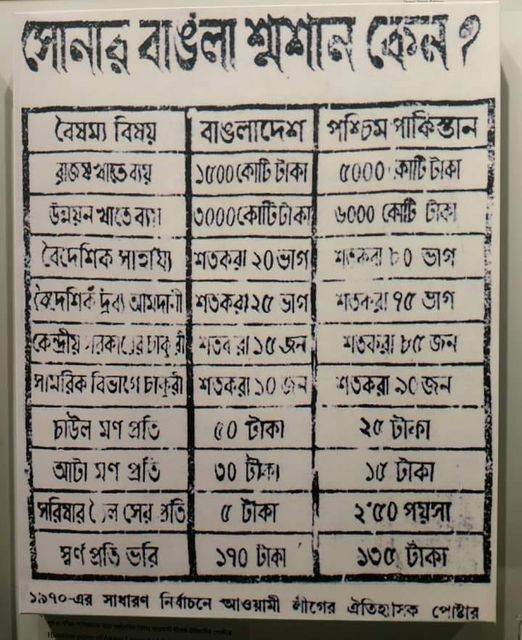 সোনার বাঙলা শ্মশান কেন ?
বৈষম্য বিষয় বাঙলাদেশ পশ্চিম পাকিস্তান
রাজস্ব খাতে ব্যয় ১৫০০ কোটি টাকা ৫০০০ কোটি টাকা
উন্নয়ন খাতে ব্যয় ৩০০০ কোটি টাকা ৬০০০ কোটি টাকা
বৈদেশিক সাহায্য শতকরা ২০ ভাগ শতকরা ৮০ ভাগ
বৈদেশিক দ্রব্য আমদানী শতকরা ২৫ ভাগ শতকরা ৭৫ ভাগ
কেন্দ্রীয় সরকারের চাকুরী শতকরা ১৫ জন শতকরা ৮৫ জন
সামরিক বিভাগে চাকুরী শতকরা ১০ জন শতকরা ৯০ জন
চাউল মণ প্রতি ৫০ টাকা ২৫ টাকা
আটা মণ প্রতি ৩০ টাকা ১৫ টাকা
সরিষার তৈল সের প্রতি ৫ টাকা ২'৫০ পয়সা
স্বর্ণ প্রতি ভরি ১৭০ টাকা ১৩৫ টাকা
১৯৭০-এর সাধারণ নির্বাচনে আওয়ামী লীগের ঐতিহাসিক পোষ্টার